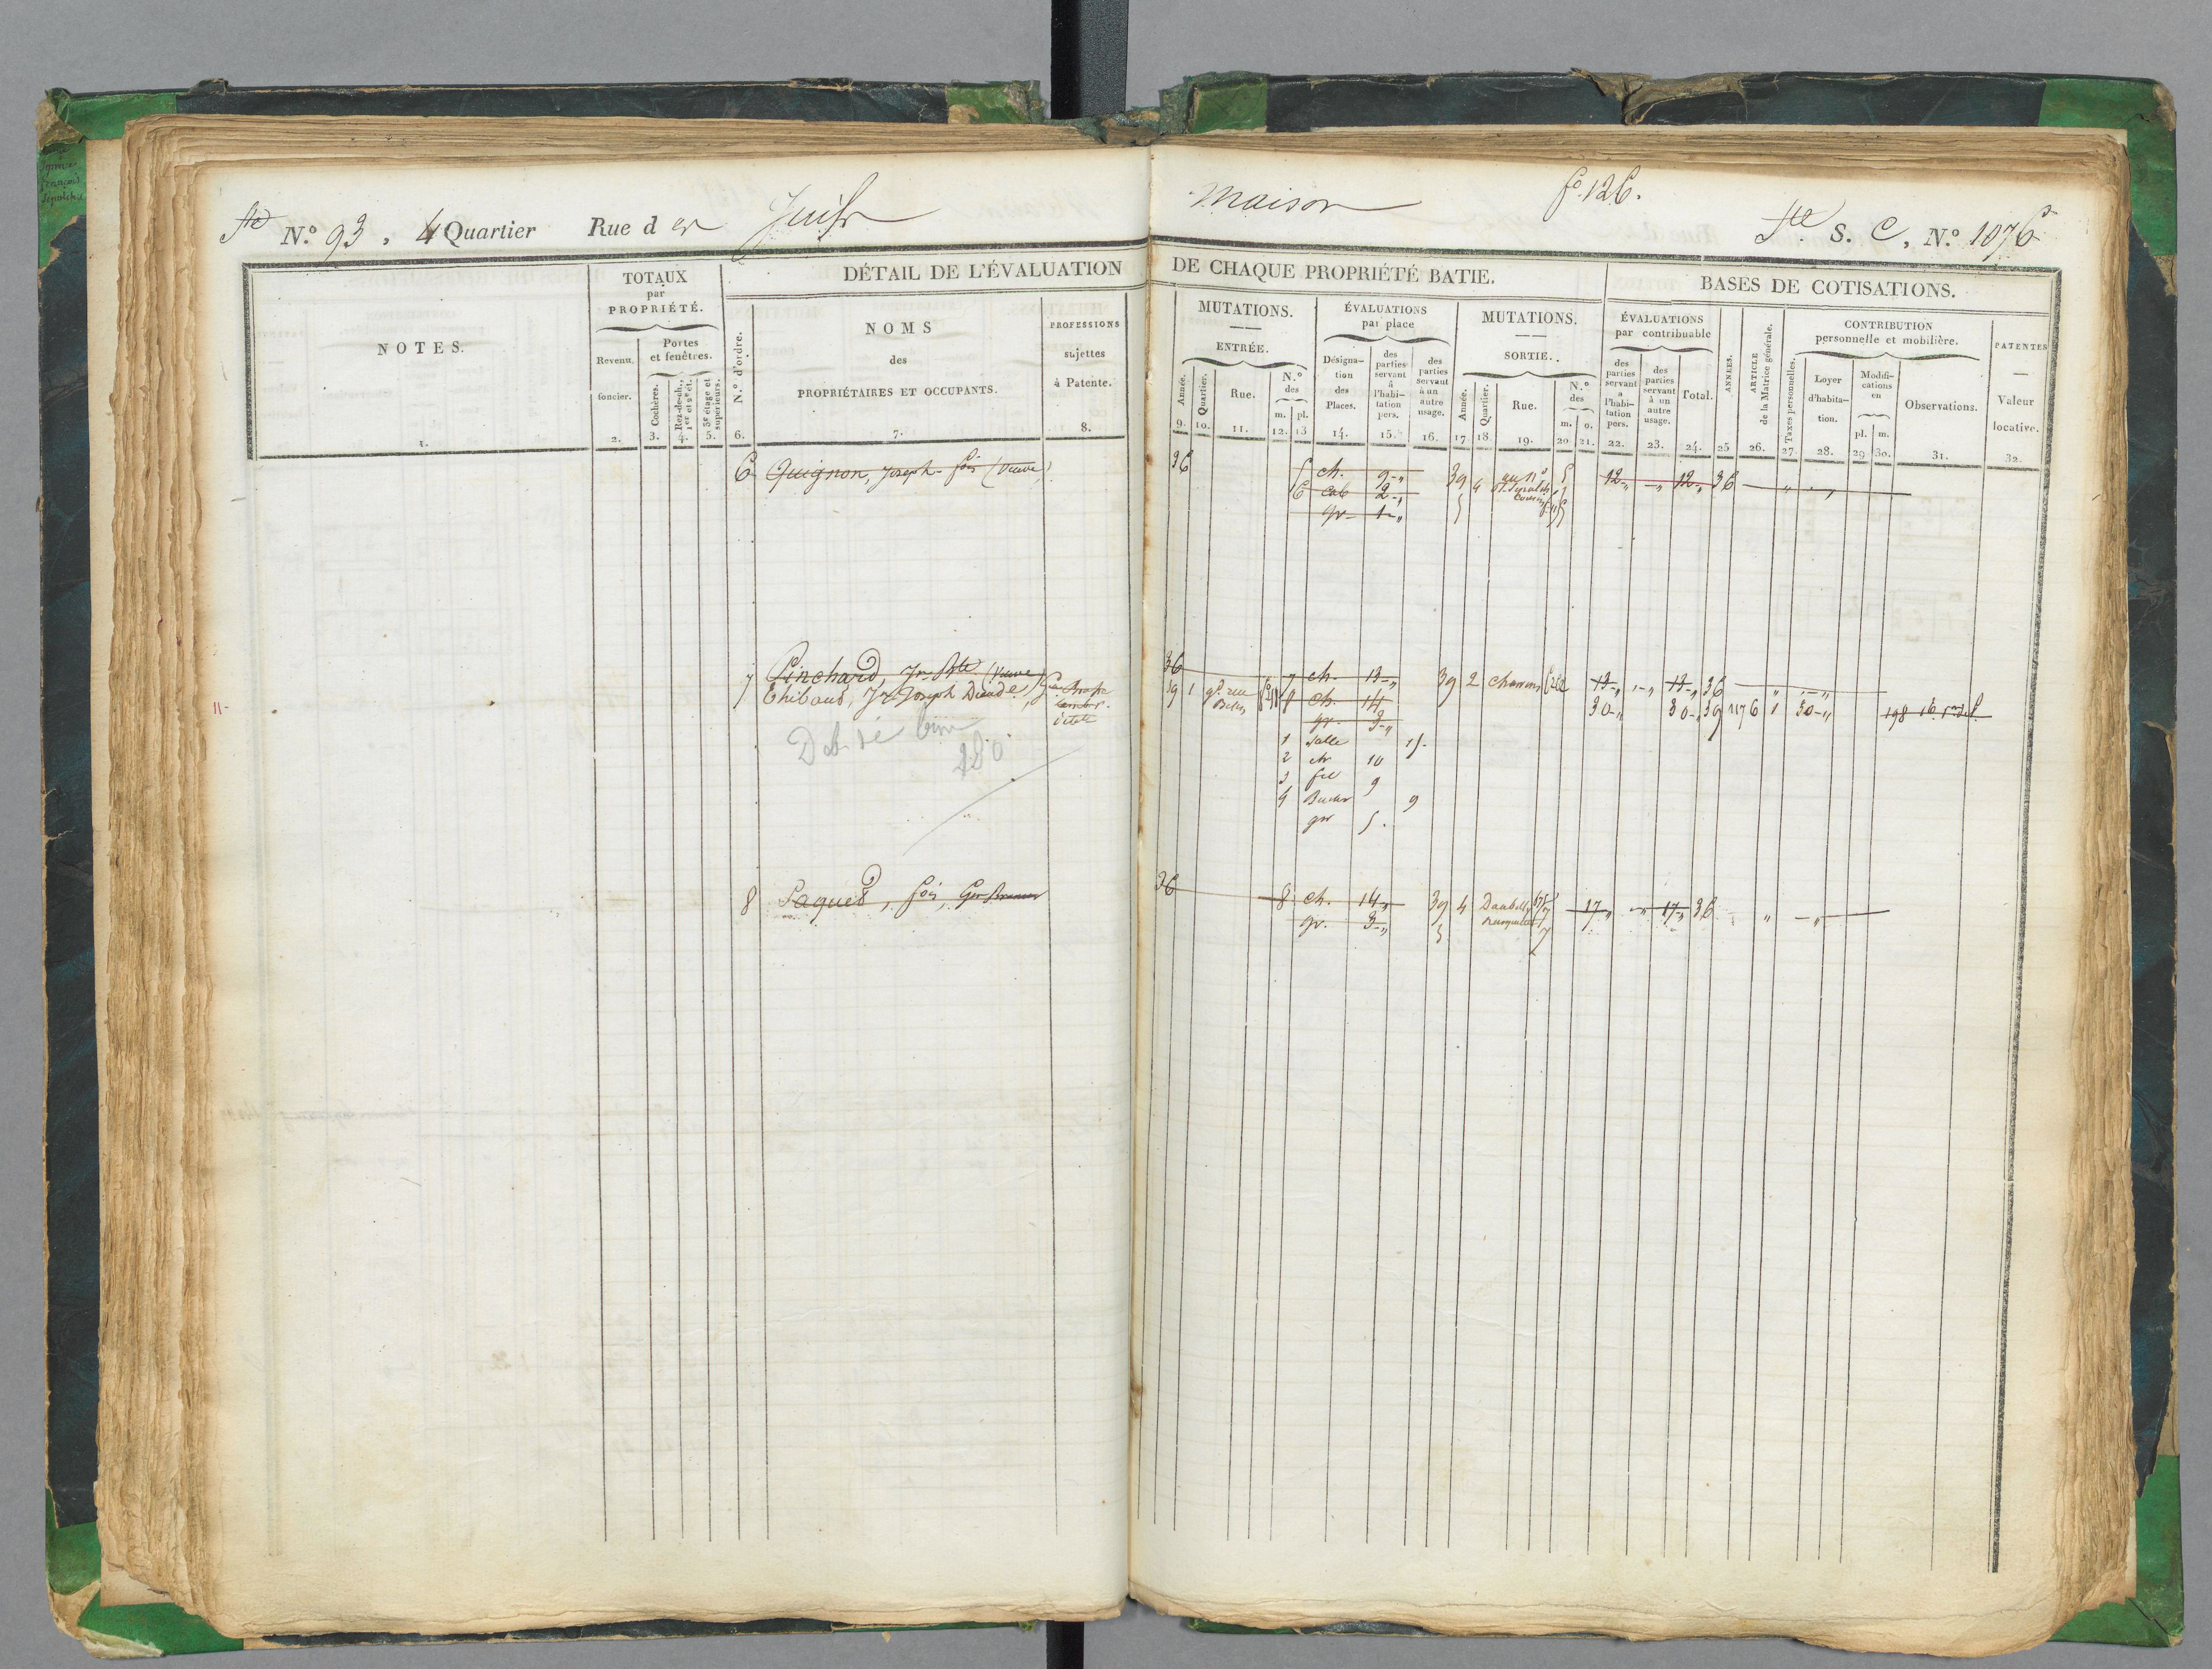 N.o 93, 4 Quartier Rue des Juifs
Maison fo. 126.
S. C, N.o 1076
TOTAUX
par
PROPRIÉTÉ.
DÉTAIL DE L'ÉVALUATION
DE CHAQUE PROPRIÉTÉ BATIE.
BASES DE COTISATIONS.
NOTES.
Revenu
foncier.
Portes
et fenêtres.
Cochères.
Rez-de-ch., 1er et 2e ét.
3e étage et supérieurs.
N.o d'ordre.
NOMS
des
PROPRIÉTAIRES ET OCCUPANTS.
PROFESSIONS
sujettes
à Patente.
MUTATIONS.
ENTRÉE.
Année.
Quartier.
Rue.
N.o
des
m. pl.
ÉVALUATIONS
par place
Désigna-
tion
des
Places.
des
parties
servant
à
l'habi-
tation
pers.
des
parties
servant
à un
autre
usage.
MUTATIONS.
SORTIE.
Année.
Quartier.
Rue.
N.o
des
m. o.
ÉVALUATIONS
par contribuable
des
parties
servant
a
l'habi-
tation
pers.
des
parties
servant
à un
autre
usage.
Total.
ANNÉES.
ARTICLE
de la Matrice générale.
CONTRIBUTION
personnelle et mobilière.
Taxes personnelles.
Loyer
d'habita-
tion.
Modifi-
cations
en
pl. m.
Observations.
PATENTES
Valeur
locative.
1. 2. 3. 4. 5. 6. 7. 8.
9. 10. 11. 12. 13 14. 15. 16. 17. 18. 19. 20 21. 22. 23. 24. 25 26. 27. 28. 29 30. 31. 32.
6 Quignon, Joseph fois (Veuve)
36 5 ch. 9 39 4 12 12 36
6 cab 2
gr 1
7 Pinchard, Jn Bte (Veuve)
36 7 ch. 13 39 2 charrons 13 13 36
Thibaut, Jn Joseph Dieudé
39 1 gd. rue 8 ch. 14 30 30 39 1176 1 30
gr. 3
1 Salle 15
2 ch 10
3 9
4 9
gr 5.
280
11
8 Paquet, fois
36 8 ch. 14 39 4 17 17 36
gr. 3